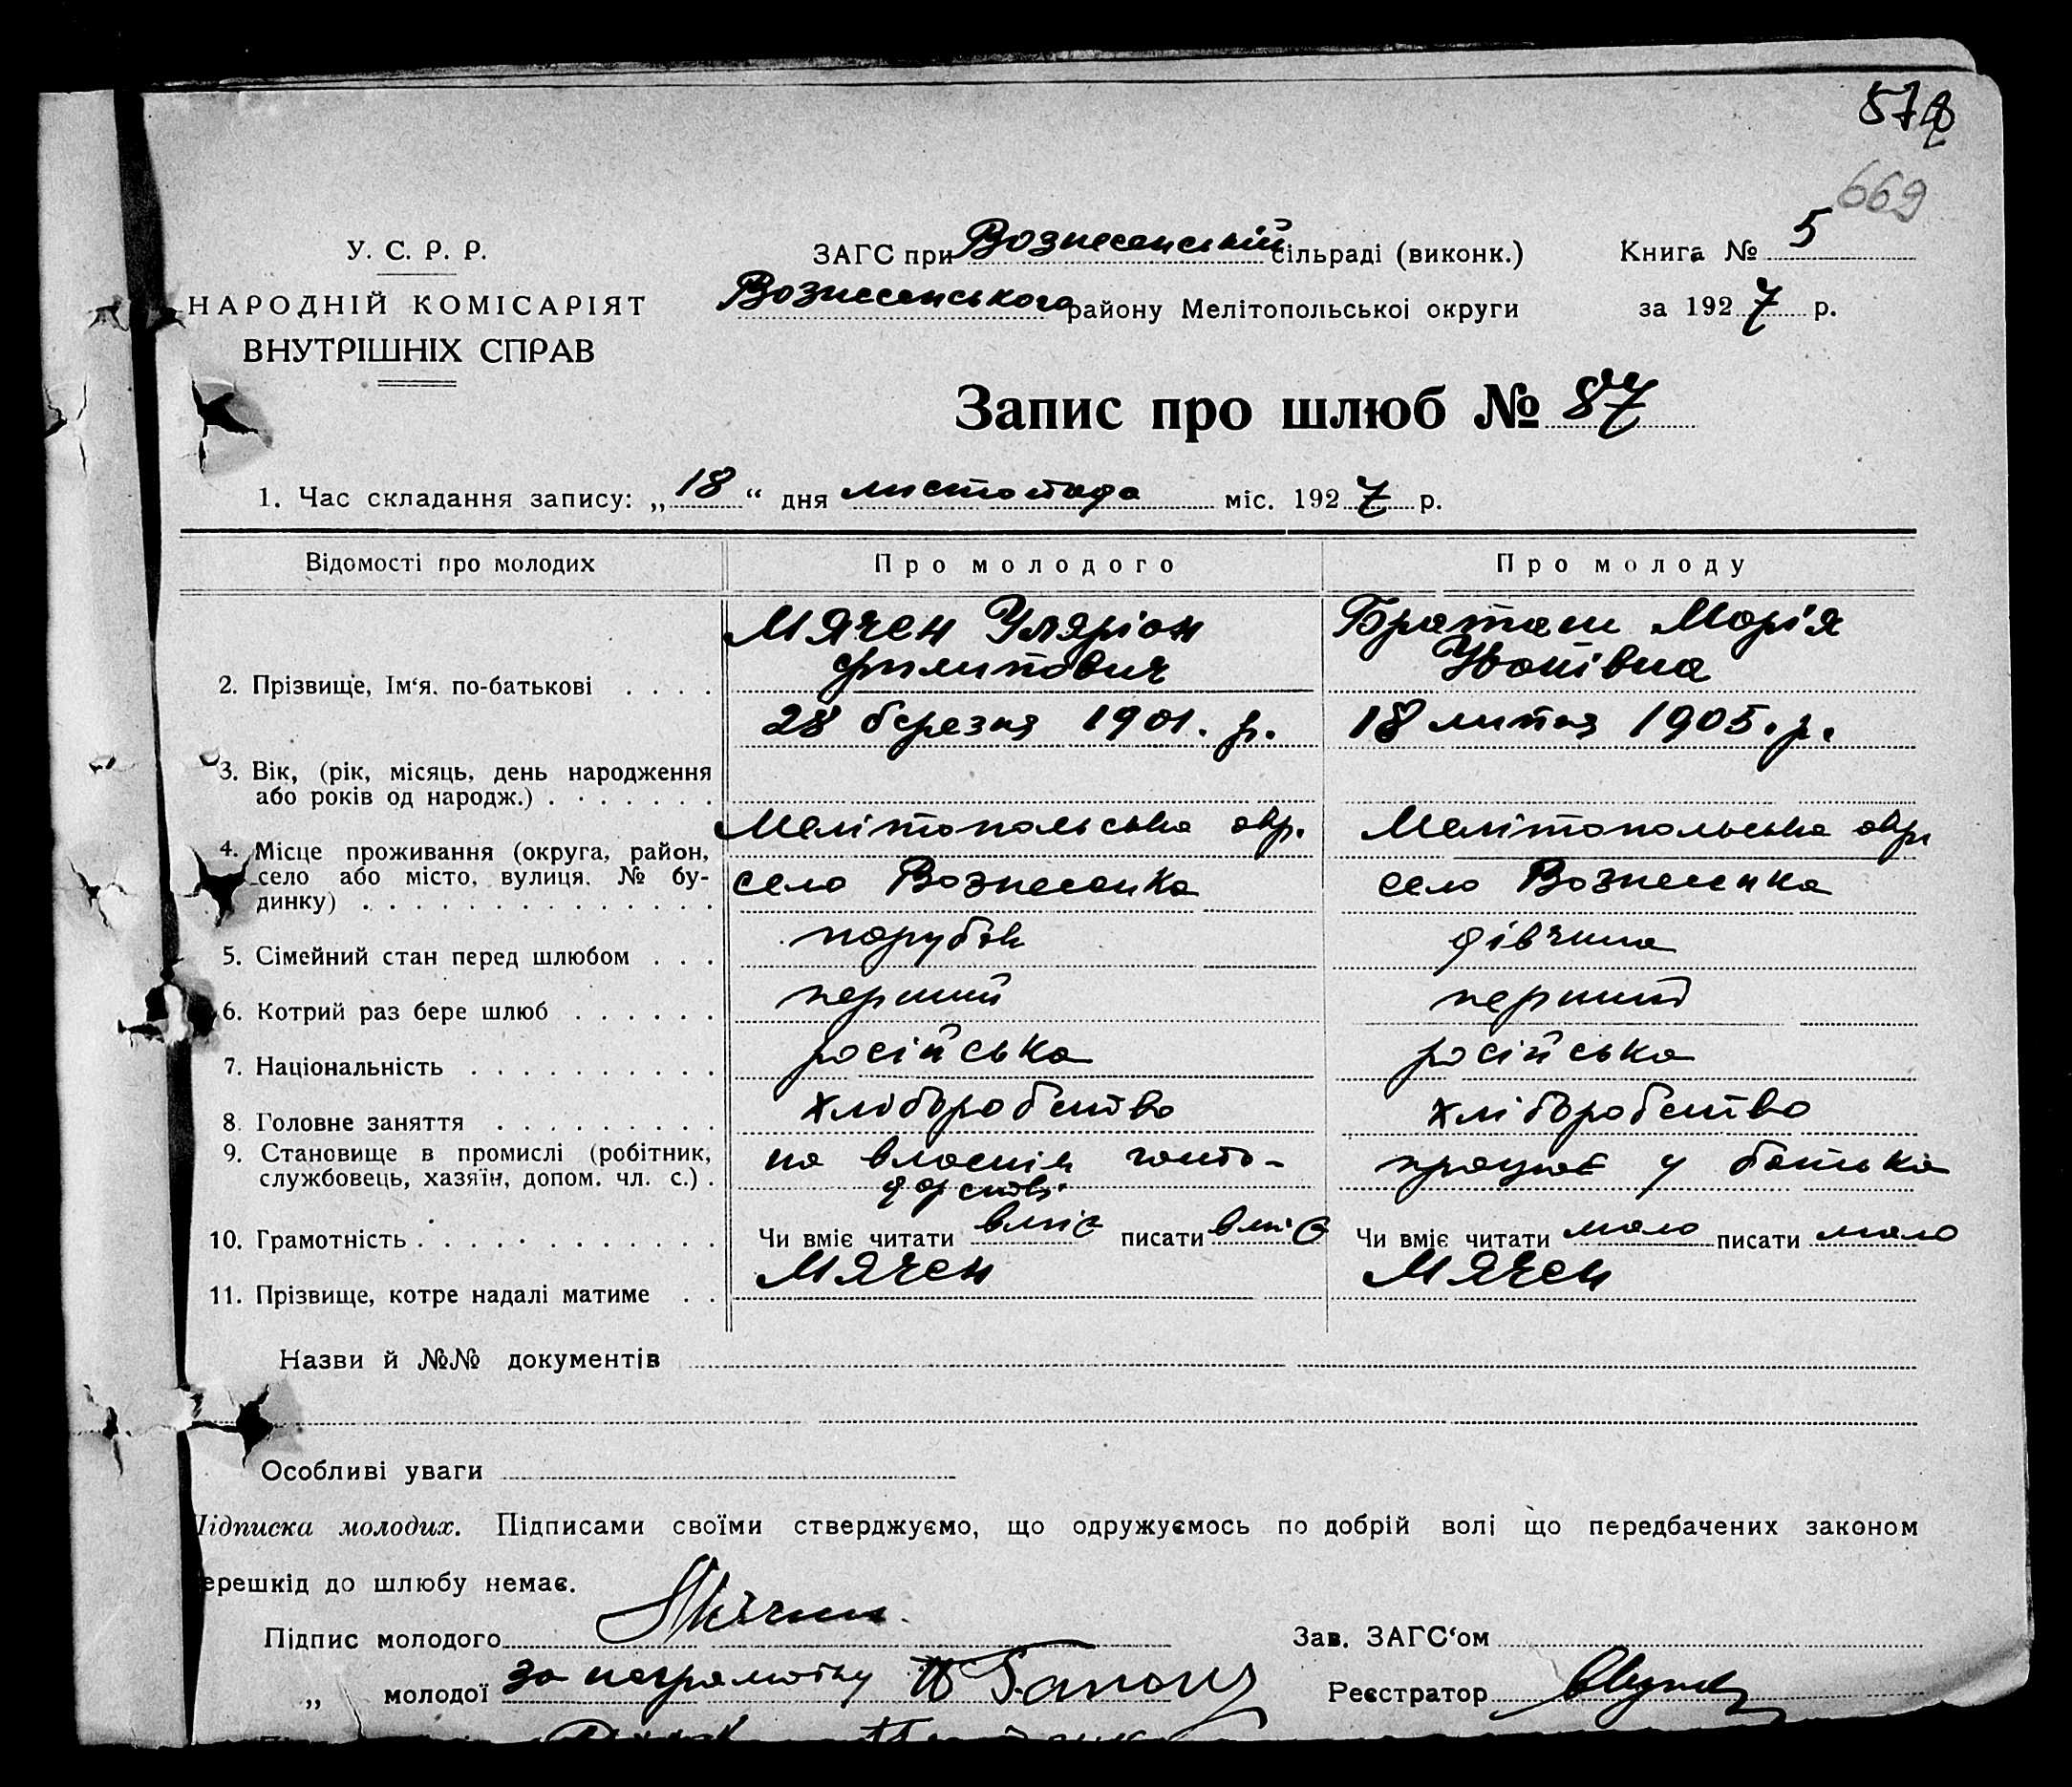 669
У. С. Р. Р.
НАРОДНІЙ КОМІСАРІЯТ
ВНУТРІШНІХ СПРАВ
ЗАГС при Вознесенській сільраді (виконк.)
Вознесенського району Мелітопольської округи
Книга № 5
за 1927 р.
Запис про шлюб № 87
1. Час складання запису: „18“ дня листопада міс. 1927 р.
Відомості про молодих
Про молодого
Про молоду
2. Прізвище, Ім‘я. по-батькові . . . .
Мячен Іляріон
Филипович
Браташ Марія
Іванівна
3. Вік, (рік, місяць, день народження
або років од народж.) . . . . . . .
28 березня 1901. р.
18 липня 1905. р.
4. Місце проживання (округа, район,
село або місто, вулиця. № бу-
динку) . . . . . . . . . . . . . .
Мелітопольська окр.
село Вознесенка
Мелітопольська окр.
село Вознесенка
5. Сімейний стан перед шлюбом . . .
парубок
дівчина
6. Котрий раз бере шлюб . . . . . .
перший
перший
7. Національність . . . . . . . . . .
російська
російська
8. Головне заняття . . . . . . . . .
хліборобство
хліборобство
9. Становище в промислі (робітник,
службовець, хазяїн, допом. чл. с.) .
на власнім госпо-
дарстві
працює у батька
10. Грамотність . . . . . . . . . . . .
Чи вміє читати вміє писати вміє
Чи вміє читати мало писати мало
11. Прізвище, котре надалі матиме . .
Мячен
Мячен
Назви й №№ документів
Особливі уваги
Підписка молодих. Підписами своїми стверджуємо, що одружуємось по добрій волі що передбачених законом
ерешкід до шлюбу немає.
Підпис молодого Мячин
Зав. ЗАГС‘ом
„ молодої за неграмотну
Реєстратор